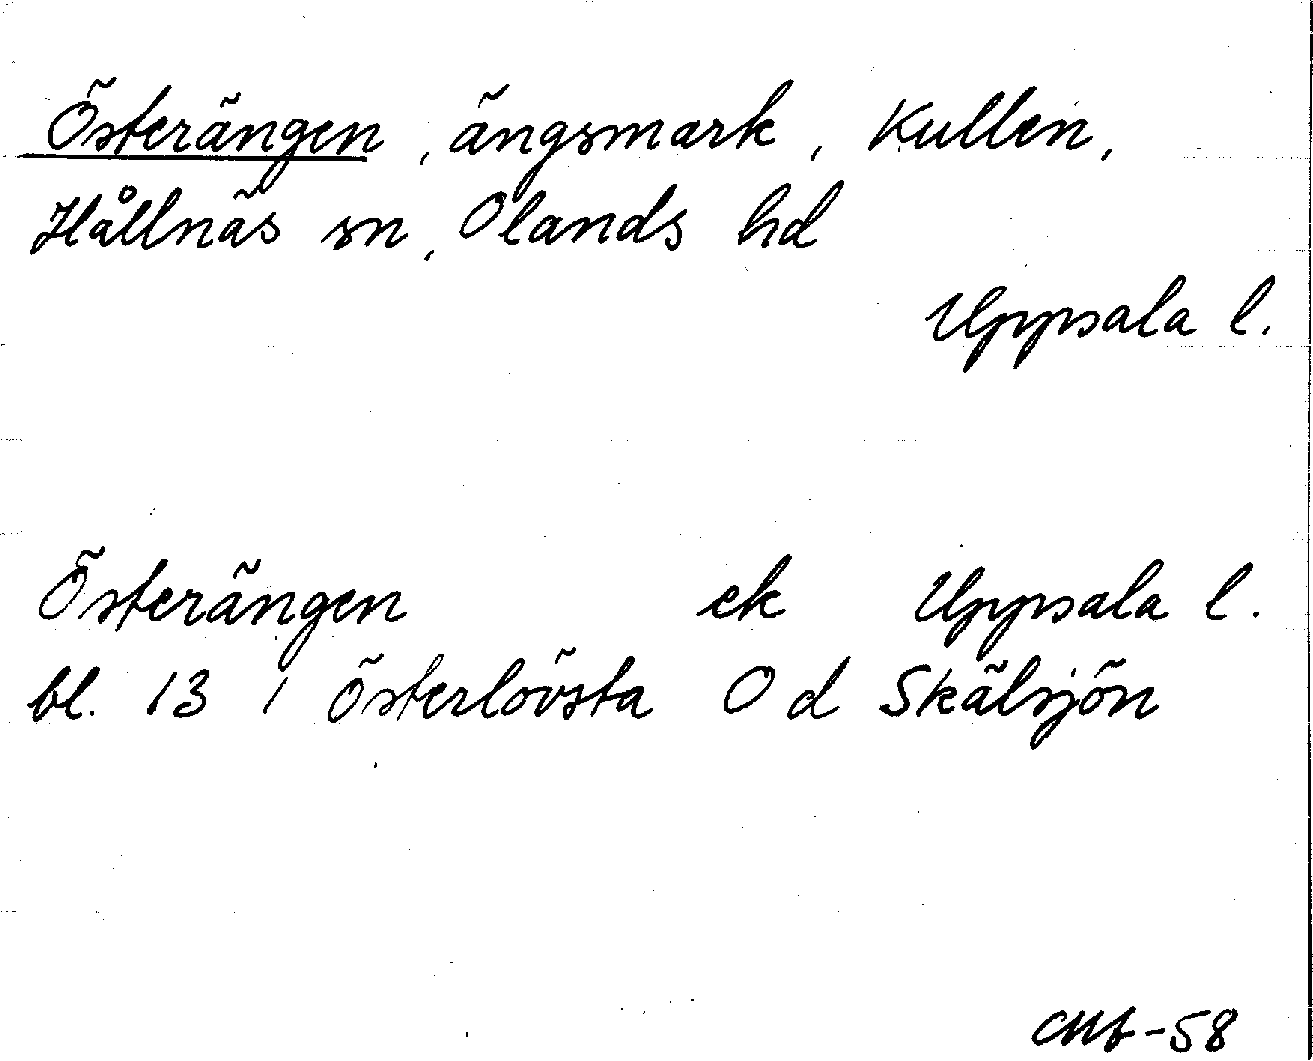 Österängen, ängsmark, Kullen,
Hållnäs sn, Olands hd
Uppsala l.
Österängen ek Uppsala l.
bl. 13 i Österlövsta O d Skälsjön
-58